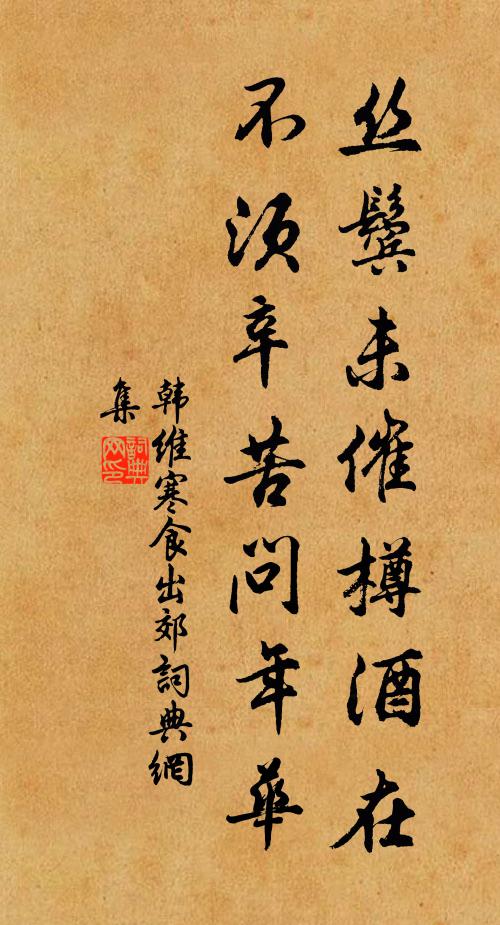 丝鬓未催樽酒在
不须辛苦问年华
韩维寒食出郊词典網
集
詞典網印